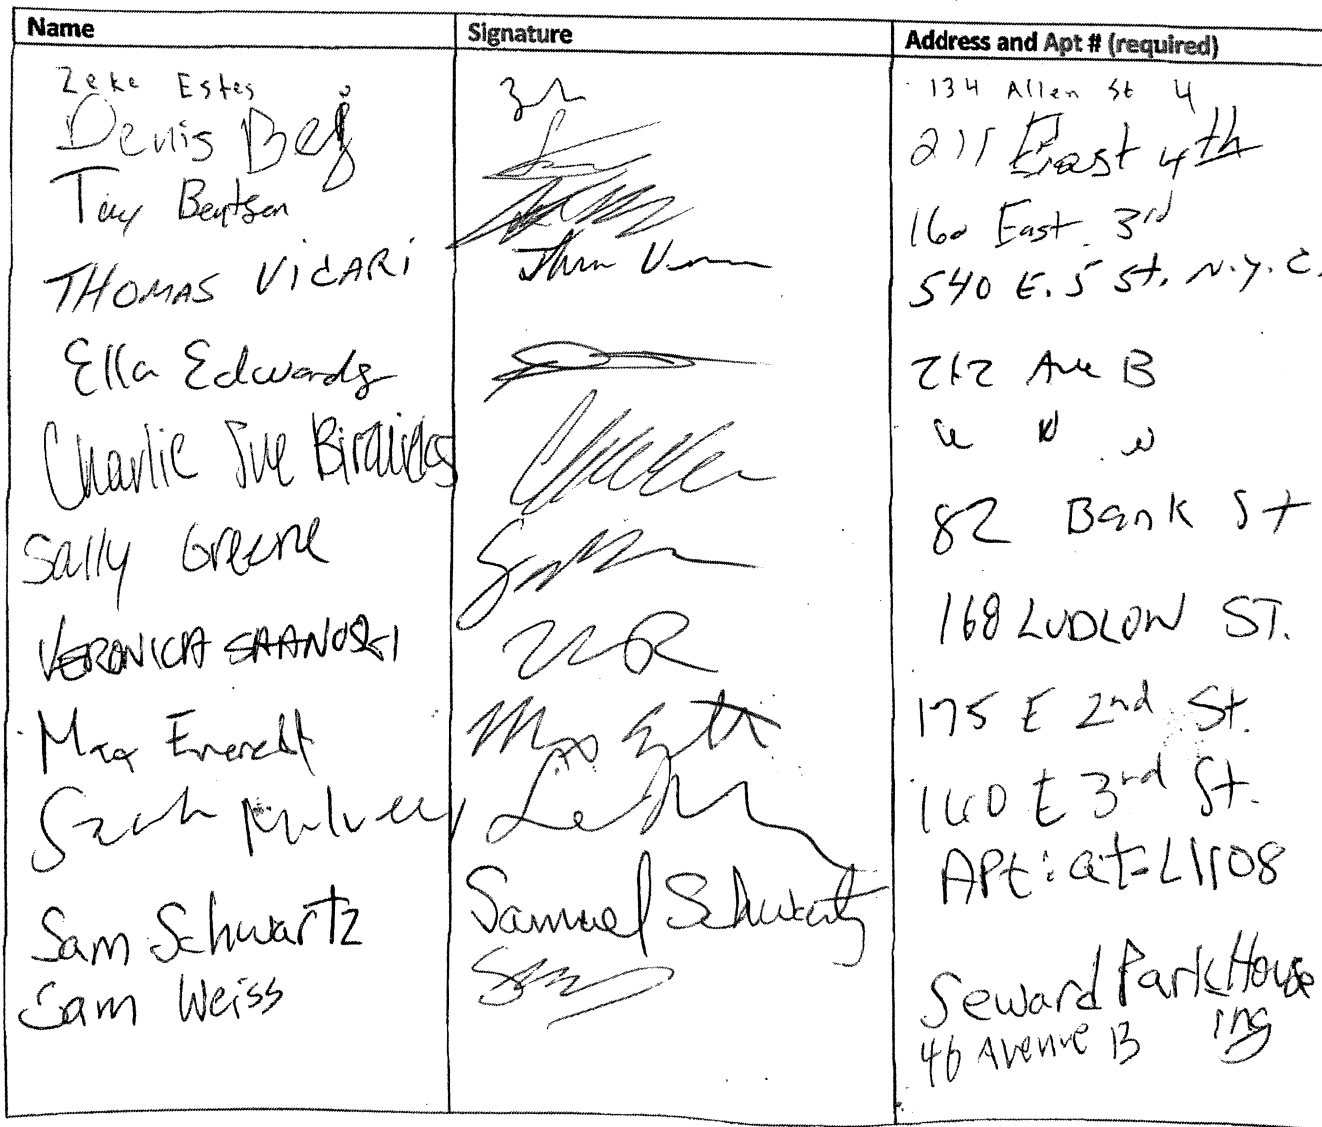 Name Signature Address and Apt # (required)
Zeke Estes 134 Allen St 4
Denis Bej 211 East 4th
Tony Bentsen 160 East 3rd
THOMAS VICARI 540 E. 5 St. N.Y.C.
Ella Edwards 212 Ave B
Charlie Sue " " "
Sally Greene 82 Bank St
VERONICA 168 LUDLOW ST.
Max Everett 175 E 2nd St.
Sarah Mulvey 160 E 3rd St.
Sam Schwartz Samuel Schwartz APt: L1108
Seward Park Hous
ing
Sam Weiss 46 Avenue B